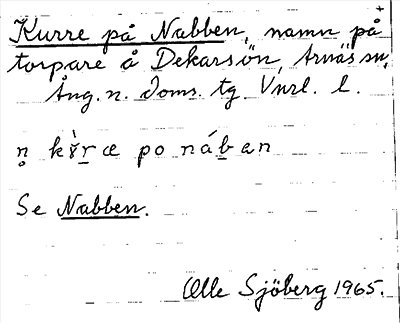 Kurre på Nabben, namn på
torpare å Dekarsön, Arnäs sn,
Ång. n. doms. tg Vnrl. l.
n̥ kɤ̀ræ po nában
Se Nabben.
Olle Sjöberg 1965.